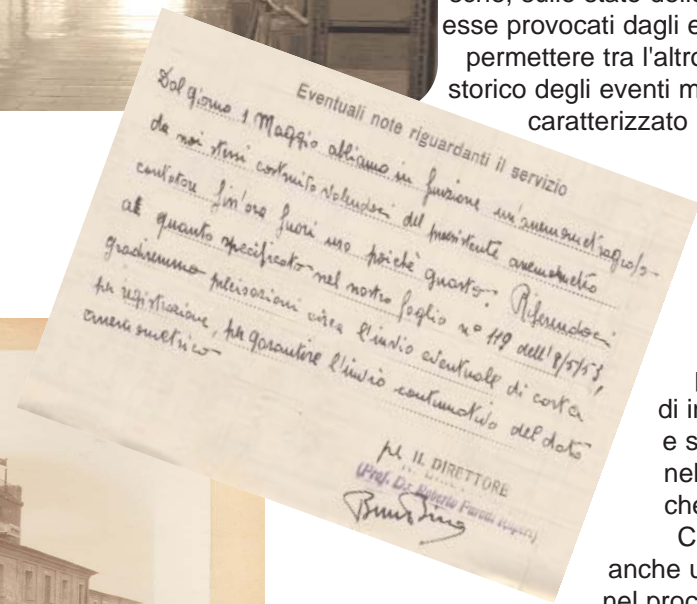 esse provocati dagli e
permettere tra l'altro
storico degli eventi m
caratterizzato
Eventuali note riguardanti il servizio
Dal giorno 1 Maggio abbiamo in funzione un'anemometrografo
da noi stessi costruito valendoci del presistente anemometro
contatore fin'ora fuori uso poichè guasto. Riferendoci
a quanto specificato nel nostro foglio nº 119 dell'8/5/53,
gradiremmo precisazioni circa l'invio eventuale di carta
per registrazione, per garantire l'invio continuativo del dato
anemometrico
pe IL DIRETTORE
(Prof. Dr. Roberto Parodi
di i
e s
nel
che
C
anche u
nel proc